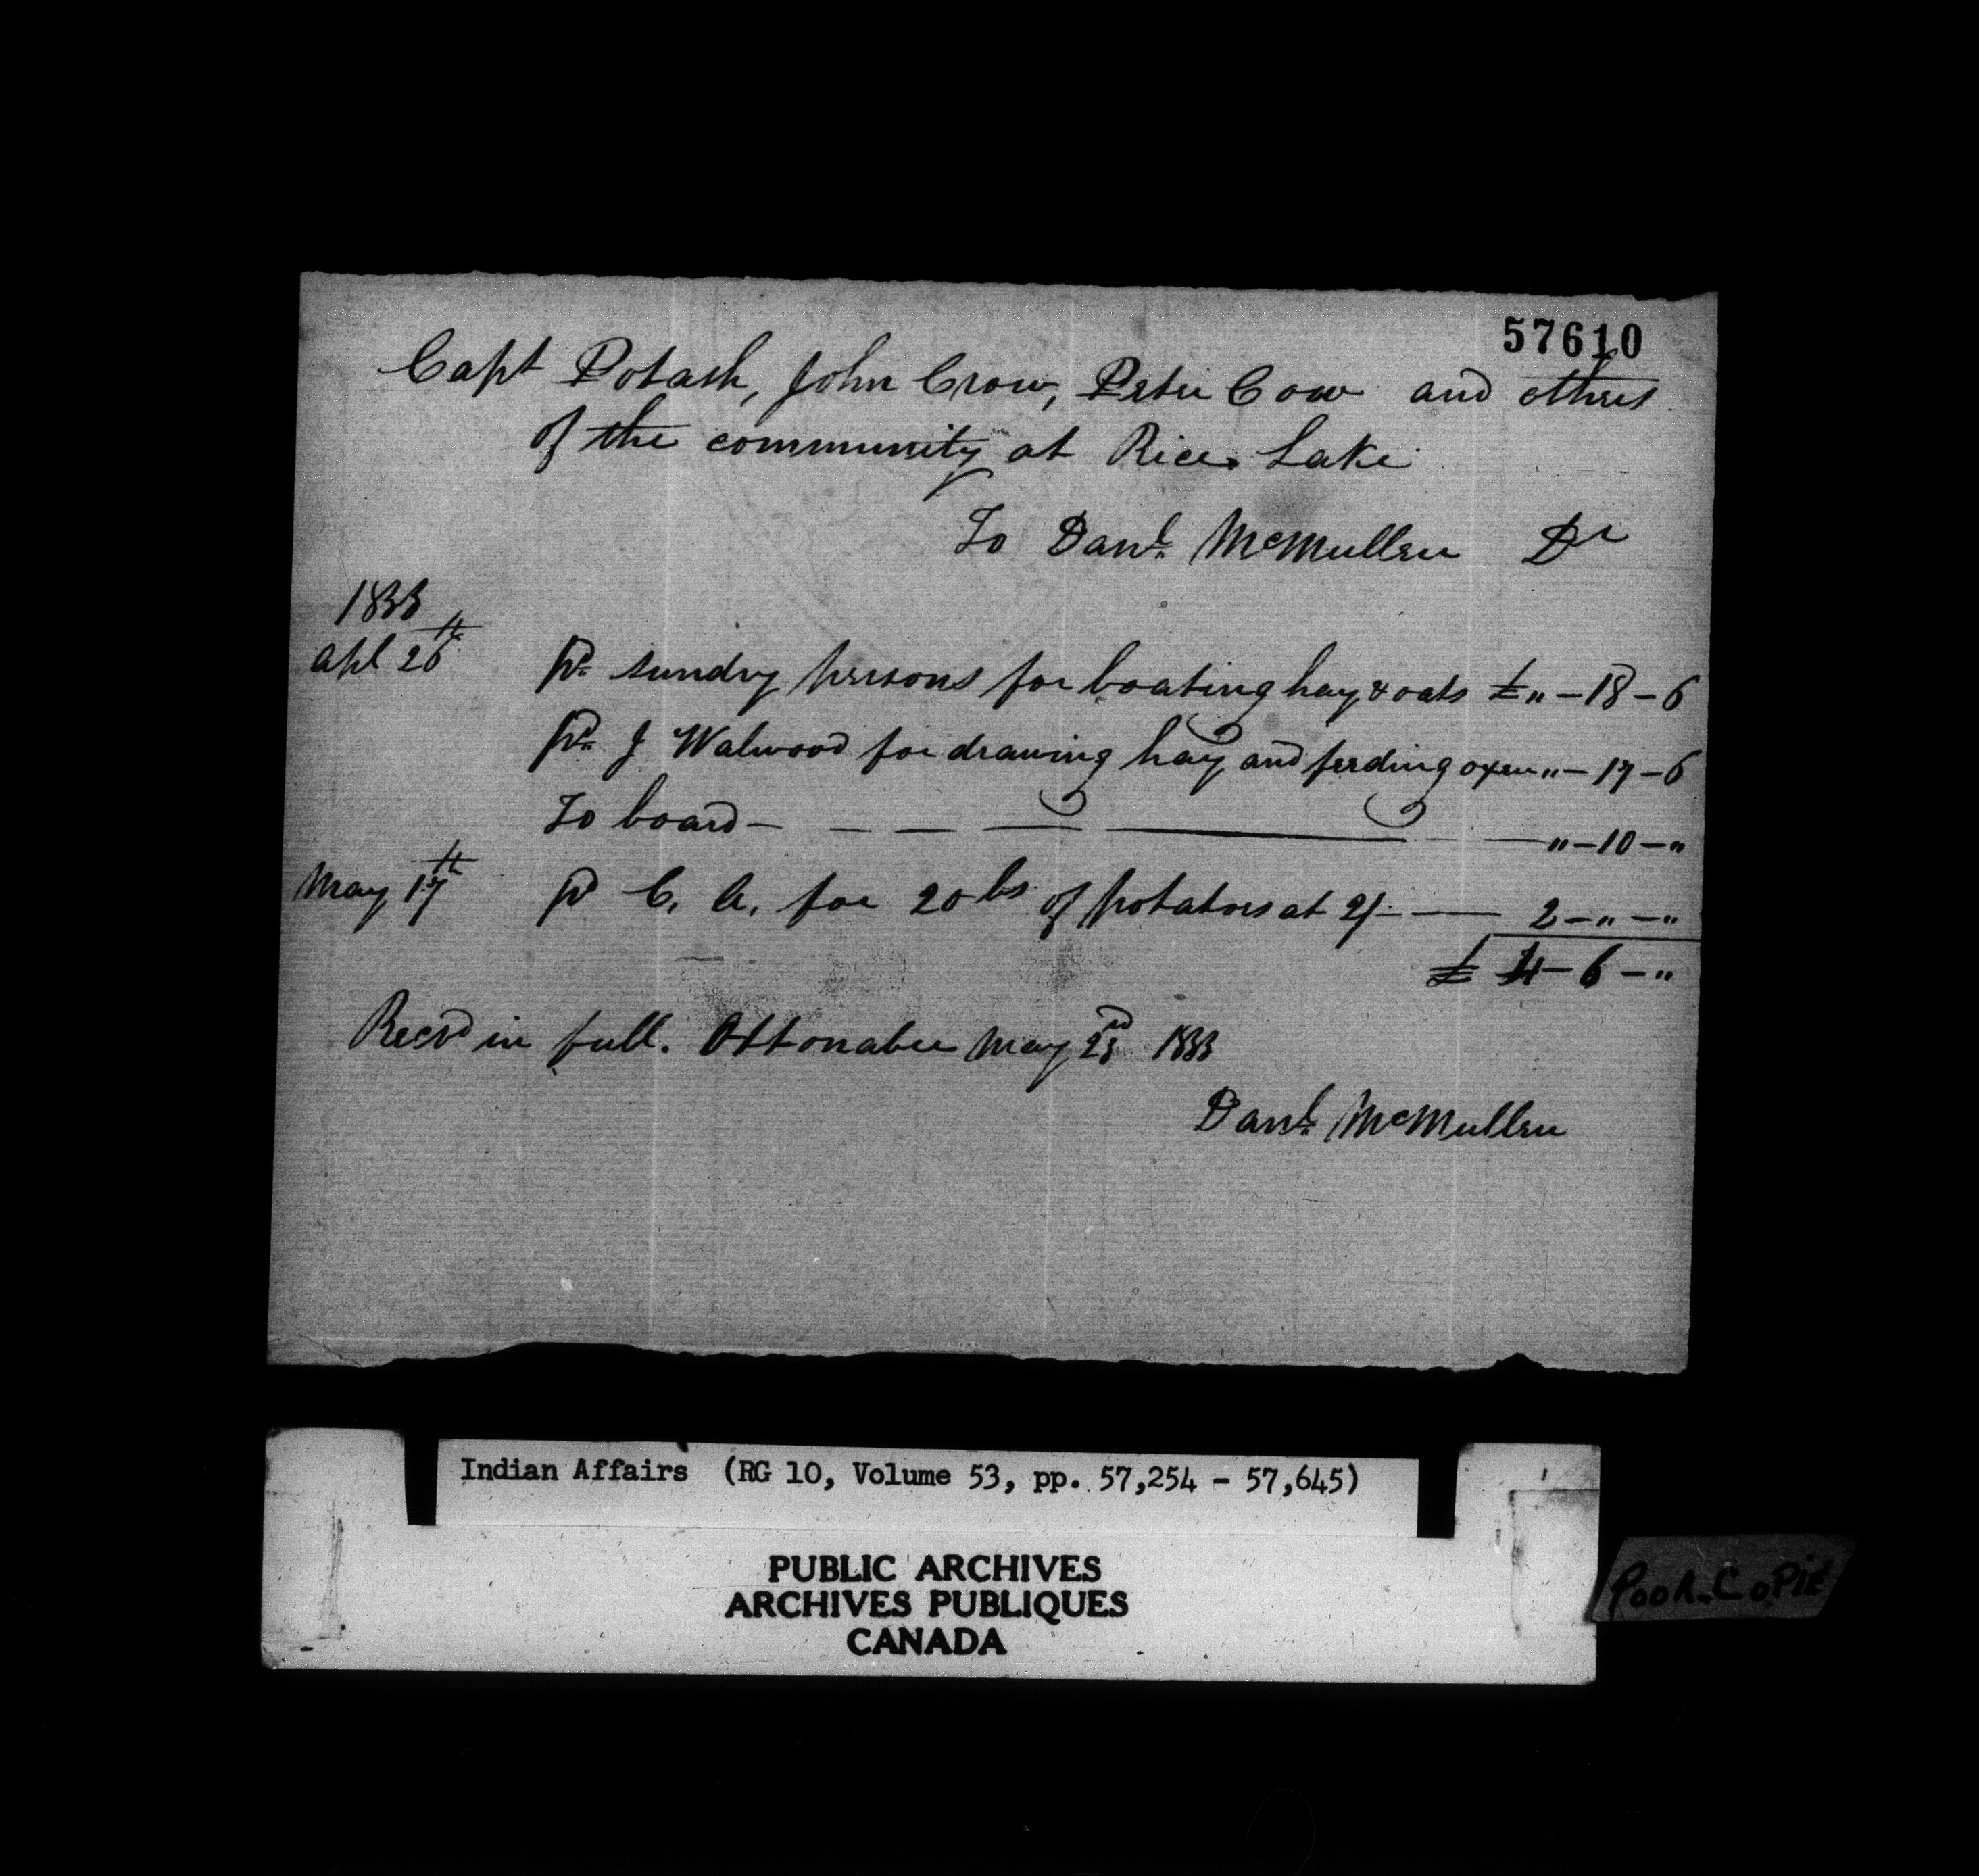 57610
Capt Potash, John Crow, Peter Cow and others
of the community at Rice Lake
To Danl. McMullen Dr
1833
Apl 26th pd. sundry persons for boating hay & oats £ " - 18 - 6
pd. J Walwood for drawing hay and feeding oxen " - 17 - 6
To board - - - - - " - 10 - "
May 17th pd C. A. for 20 bs of potatoes at 2/- - 2 - " - "
£ 4 - 6 - "
Recvd in full. Ottonabee May 23rd 1833
Danl. McMullen
Indian Affairs (RG 10, Volume 53, pp. 57,254 - 57,645)
PUBLIC ARCHIVES
ARCHIVES PUBLIQUES
CANADA
POOR COPIE